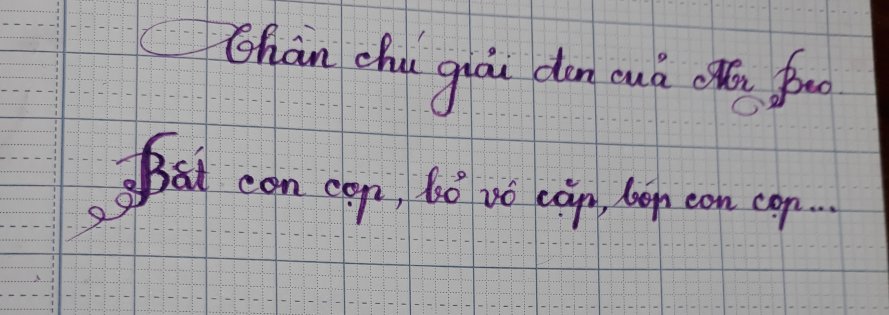 Thần chú giải đen cuả Mr Beo
Bắt con cọp, bỏ vô cặp, bóp con cọp...